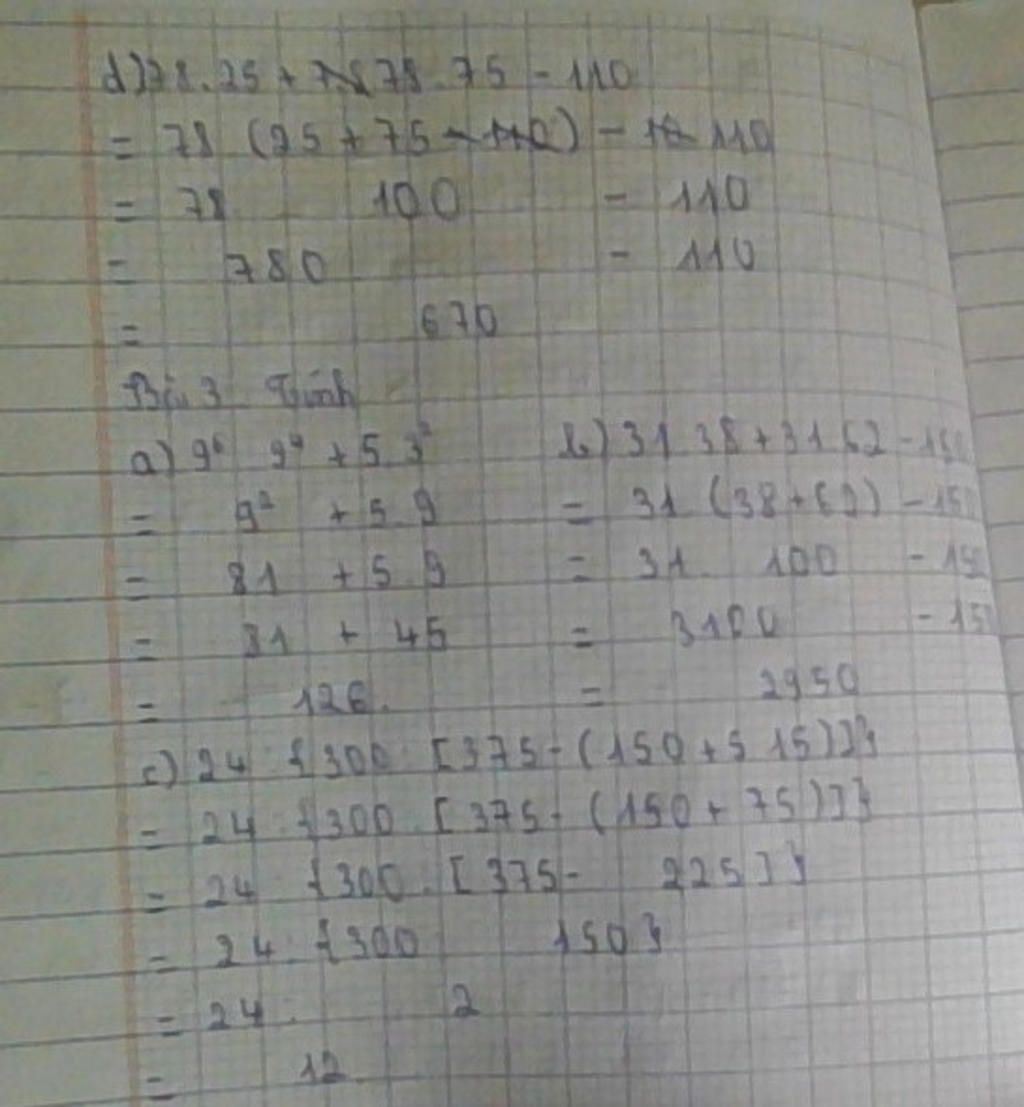 d) 78.25 + 78.75 - 110
= 78 (25 + 75) - 110
= 78 100 - 110
= 780 - 110
= 670
Bài 3 Tính
a) 9⁶ 9⁴ + 5 3²
= 9² + 5 9
= 81 + 5 9
= 81 + 45
= 126
b) 31 38 + 31 62 - 150
= 31 (38 + 62) - 150
= 31 100 - 150
= 3100 - 15
= 2950
c) 24 {300 [375 - (150 + 5 15)]}
= 24 {300 [375 - (150 + 75)]}
= 24 {300 [375 - 225]}
= 24 {300 150}
= 24 2
= 12